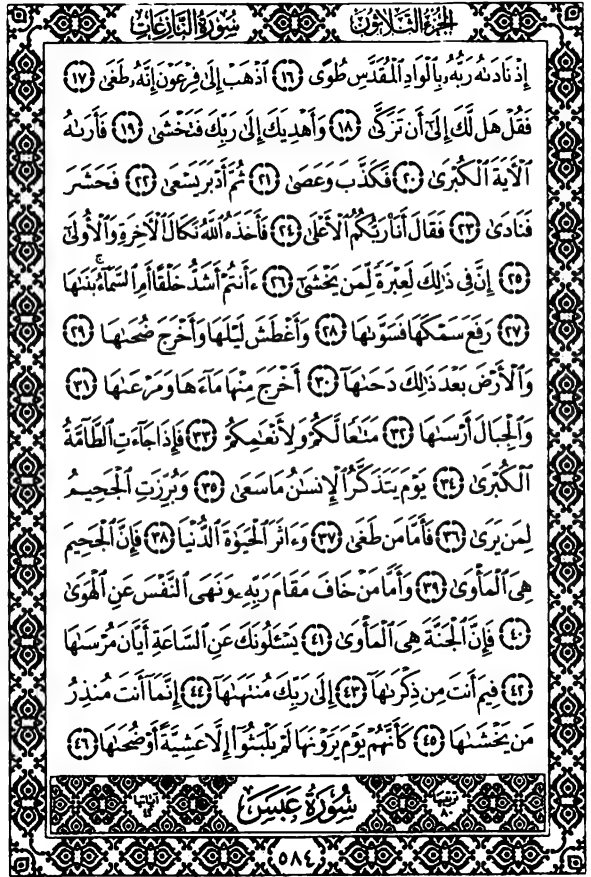 الجزء الثلاثون سورة النازعات
إِذْ نَادَىٰهُ رَبُّهُۥ بِٱلْوَادِ ٱلْمُقَدَّسِ طُوًى ١٦ ٱذْهَبْ إِلَىٰ فِرْعَوْنَ إِنَّهُۥ طَغَىٰ ١٧
فَقُلْ هَل لَّكَ إِلَىٰٓ أَن تَزَكَّىٰ ١٨ وَأَهْدِيَكَ إِلَىٰ رَبِّكَ فَتَخْشَىٰ ١٩ فَأَرَىٰهُ
ٱلْـَٔايَةَ ٱلْكُبْرَىٰ ٢٠ فَكَذَّبَ وَعَصَىٰ ٢١ ثُمَّ أَدْبَرَ يَسْعَىٰ ٢٢ فَحَشَرَ
فَنَادَىٰ ٢٣ فَقَالَ أَنَا۠ رَبُّكُمُ ٱلْأَعْلَىٰ ٢٤ فَأَخَذَهُ ٱللَّهُ نَكَالَ ٱلْـَٔاخِرَةِ وَٱلْأُولَىٰٓ
٢٥ إِنَّ فِى ذَٰلِكَ لَعِبْرَةً لِّمَن يَخْشَىٰٓ ٢٦ ءَأَنتُمْ أَشَدُّ خَلْقًا أَمِ ٱلسَّمَآءُ ۚ بَنَىٰهَا
٢٧ رَفَعَ سَمْكَهَا فَسَوَّىٰهَا ٢٨ وَأَغْطَشَ لَيْلَهَا وَأَخْرَجَ ضُحَىٰهَا ٢٩
وَٱلْأَرْضَ بَعْدَ ذَٰلِكَ دَحَىٰهَآ ٣٠ أَخْرَجَ مِنْهَا مَآءَهَا وَمَرْعَىٰهَا ٣١
وَٱلْجِبَالَ أَرْسَىٰهَا ٣٢ مَتَـٰعًا لَّكُمْ وَلِأَنْعَـٰمِكُمْ ٣٣ فَإِذَا جَآءَتِ ٱلطَّآمَّةُ
ٱلْكُبْرَىٰ ٣٤ يَوْمَ يَتَذَكَّرُ ٱلْإِنسَـٰنُ مَا سَعَىٰ ٣٥ وَبُرِّزَتِ ٱلْجَحِيمُ
لِمَن يَرَىٰ ٣٦ فَأَمَّا مَن طَغَىٰ ٣٧ وَءَاثَرَ ٱلْحَيَوٰةَ ٱلدُّنْيَا ٣٨ فَإِنَّ ٱلْجَحِيمَ
هِىَ ٱلْمَأْوَىٰ ٣٩ وَأَمَّا مَنْ خَافَ مَقَامَ رَبِّهِۦ وَنَهَى ٱلنَّفْسَ عَنِ ٱلْهَوَىٰ
٤٠ فَإِنَّ ٱلْجَنَّةَ هِىَ ٱلْمَأْوَىٰ ٤١ يَسْـَٔلُونَكَ عَنِ ٱلسَّاعَةِ أَيَّانَ مُرْسَىٰهَا
٤٢ فِيمَ أَنتَ مِن ذِكْرَىٰهَآ ٤٣ إِلَىٰ رَبِّكَ مُنتَهَىٰهَآ ٤٤ إِنَّمَآ أَنتَ مُنذِرُ
مَن يَخْشَىٰهَا ٤٥ كَأَنَّهُمْ يَوْمَ يَرَوْنَهَا لَمْ يَلْبَثُوٓا۟ إِلَّا عَشِيَّةً أَوْ ضُحَىٰهَا ٤٦
ترتيبها ٨٠ سُورَةُ عَبَسَ آياتها ٤٢
٥٨٤